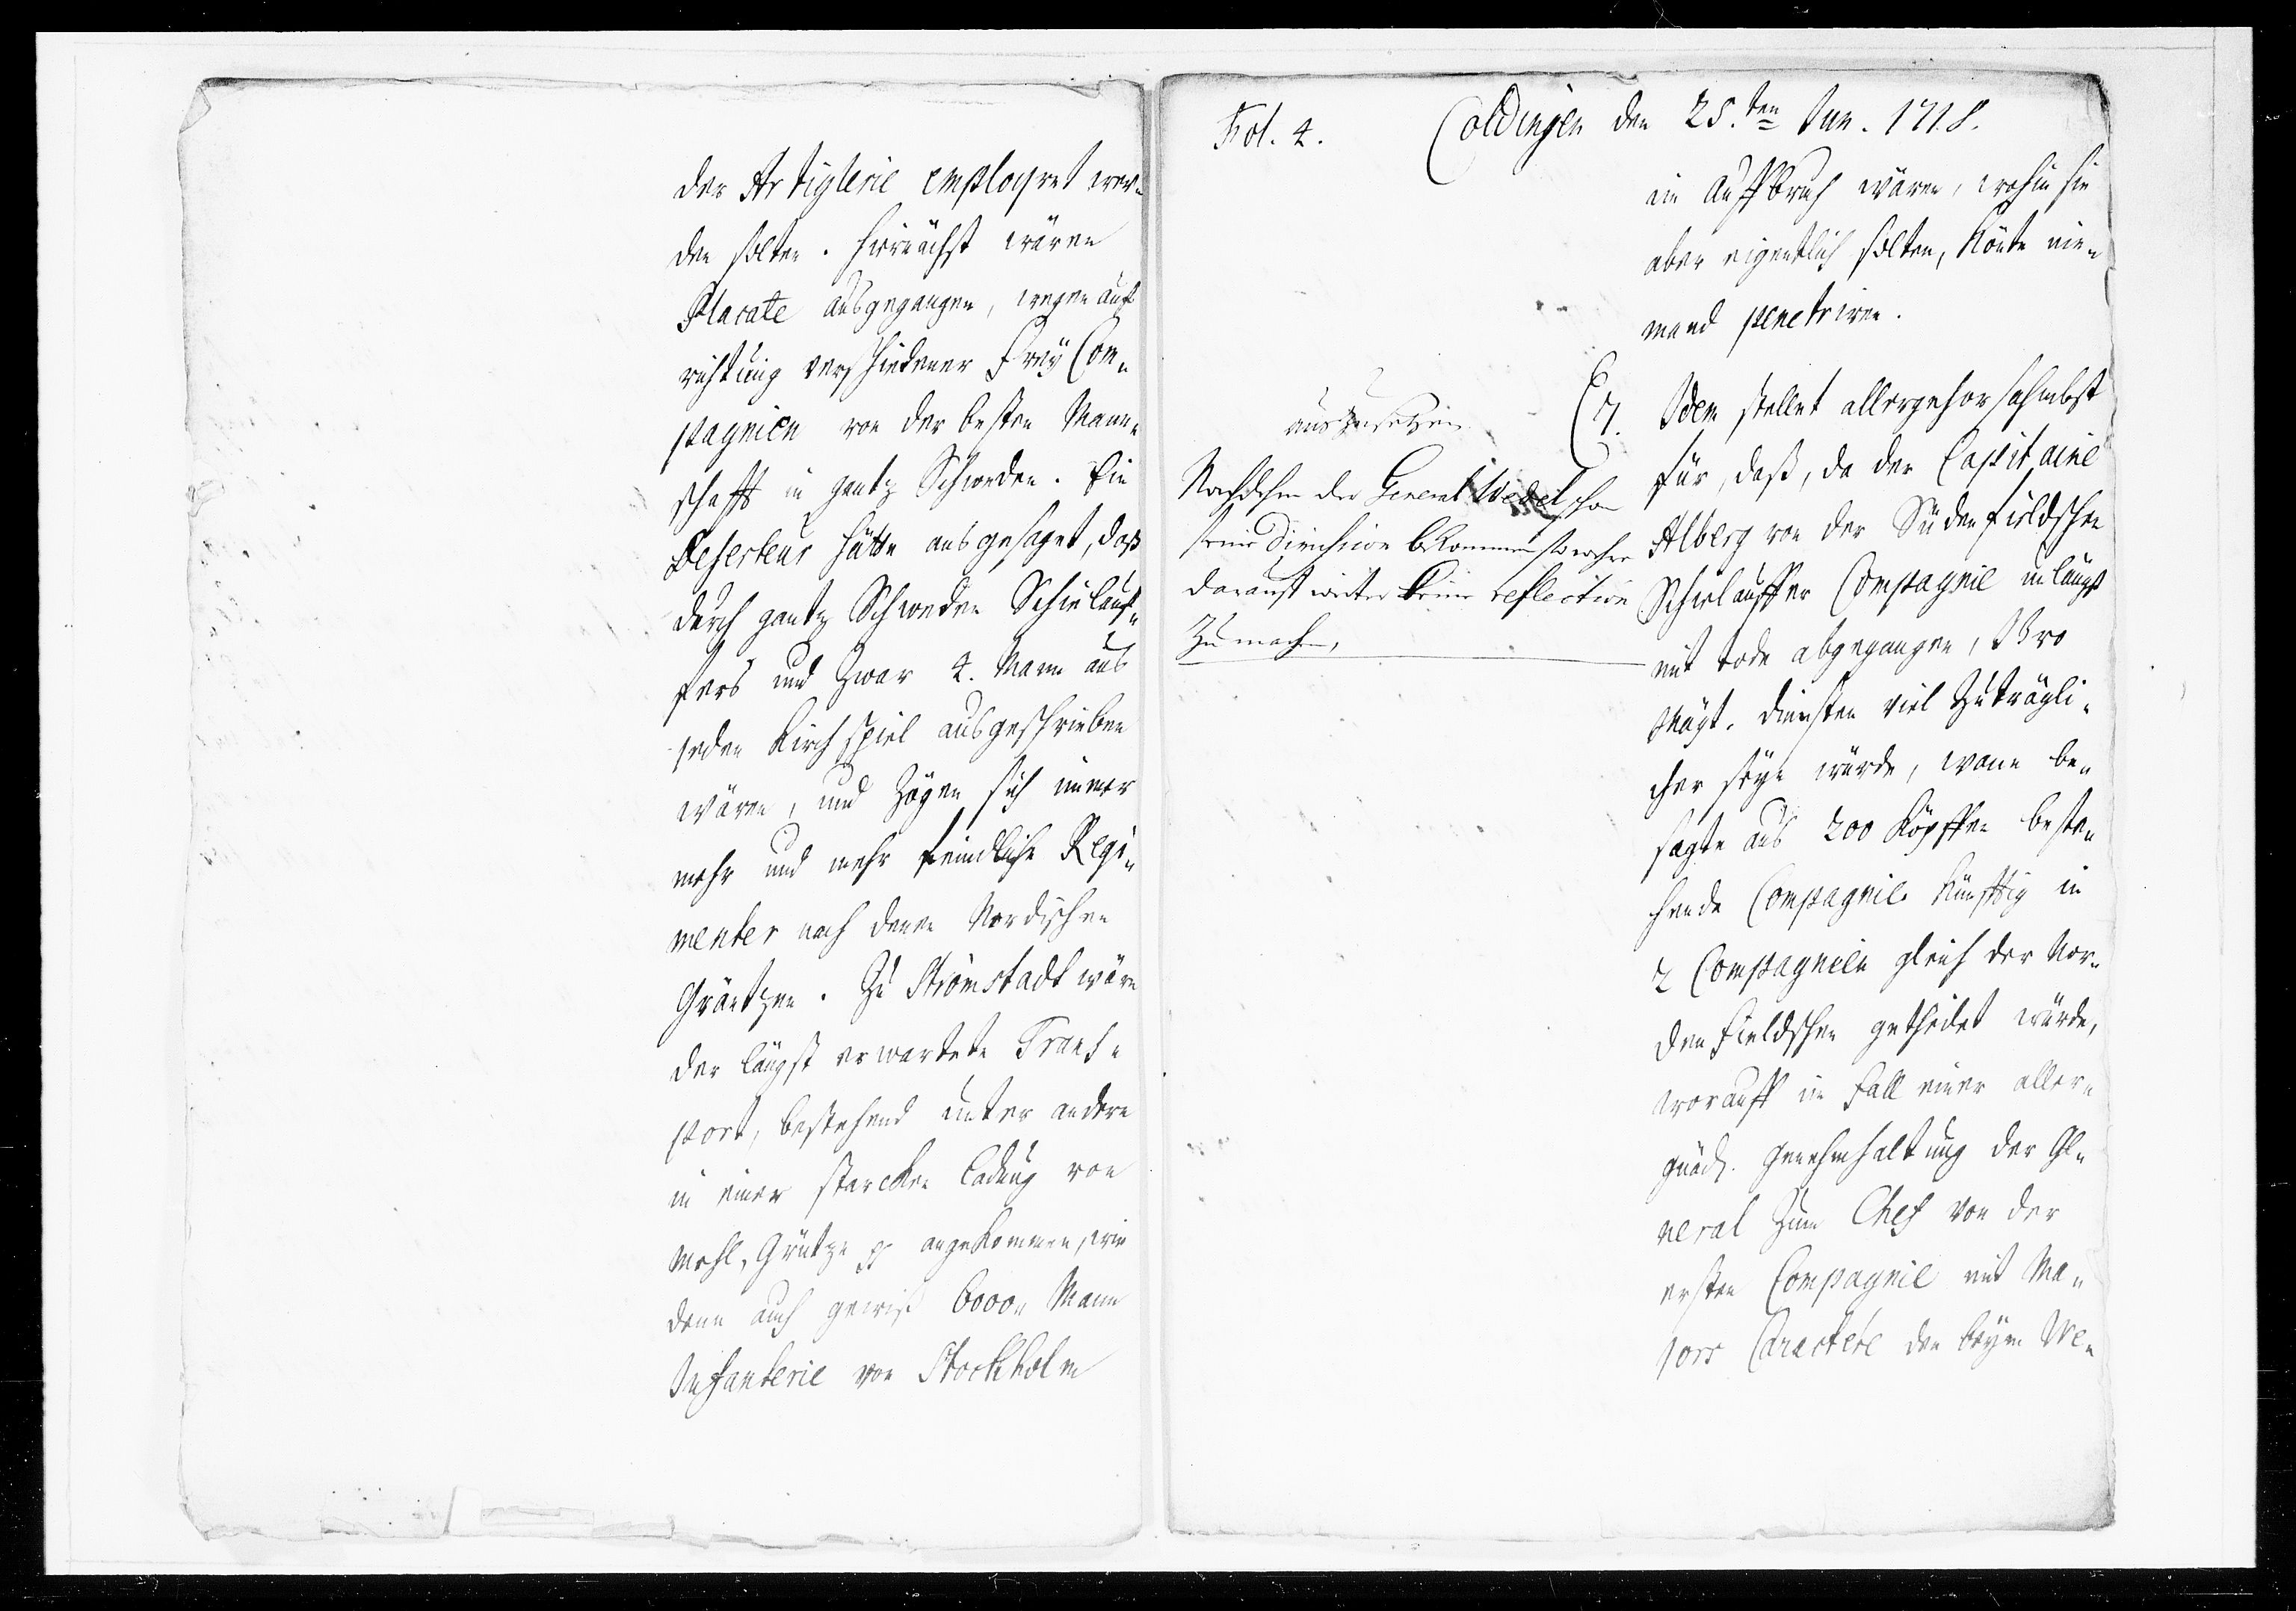 der Artiglerie employret wer-
den solten. Hiernächst wären
Placate ausgegangen, wegen auf-
richtung verschiedener Frey Com-
pagnien von der besten Mann-
schafft in gantz Schweden. Ein
Deserteur hätte ausgesaget, daß
durch gantz Schweden Schielauf-
fers und zwar 4. Mann aus
jeden Kirchspiel ausgeschrieben
wären, und zögen sich immer
mehr und mehr feindliche Regi-
menter nach denen Nordischen
Gräntzen. Zu Strömstadt wäre
der längst erwartete Trans-
port, bestehend unter andern
in einer starcken Ladung von
Mehl, Grütze pp angekommen, wie
denn auch gewiß 6000 Mann
Infanterie von Stockholm
Fol. 4. Coldingen den 25.ten Jun. 1718.
im Auffbruch wären, wohin sie
aber eigentlich solten, könte nie-
mand penetriren.
7. Idem stellet allergehorsahmbst
für, daß, da der Capitaine
Alberg von der Südenfieldschen
Schielauffer Compagnie unlängst
mit tode abgegangen, Dero
Mayt. Diensten viel zuträgli-
cher seyn würde, wann be-
sagte aus 200 Köpffen beste-
hende Compagnie künfftig in
2 Compagnien gleich der Nor-
denfieldschen getheilet würde,
worauff im Fall einer aller-
gnäd. genehmhaltung der Ge-
neral zum Chef von der
ersten Compagnie mit Ma-
jors Caractere den beym We-
auszusetzen
Nachdehm der General Wedel schon
seine Direction bekommen so
darauf weiter keine reflection
zu machen,